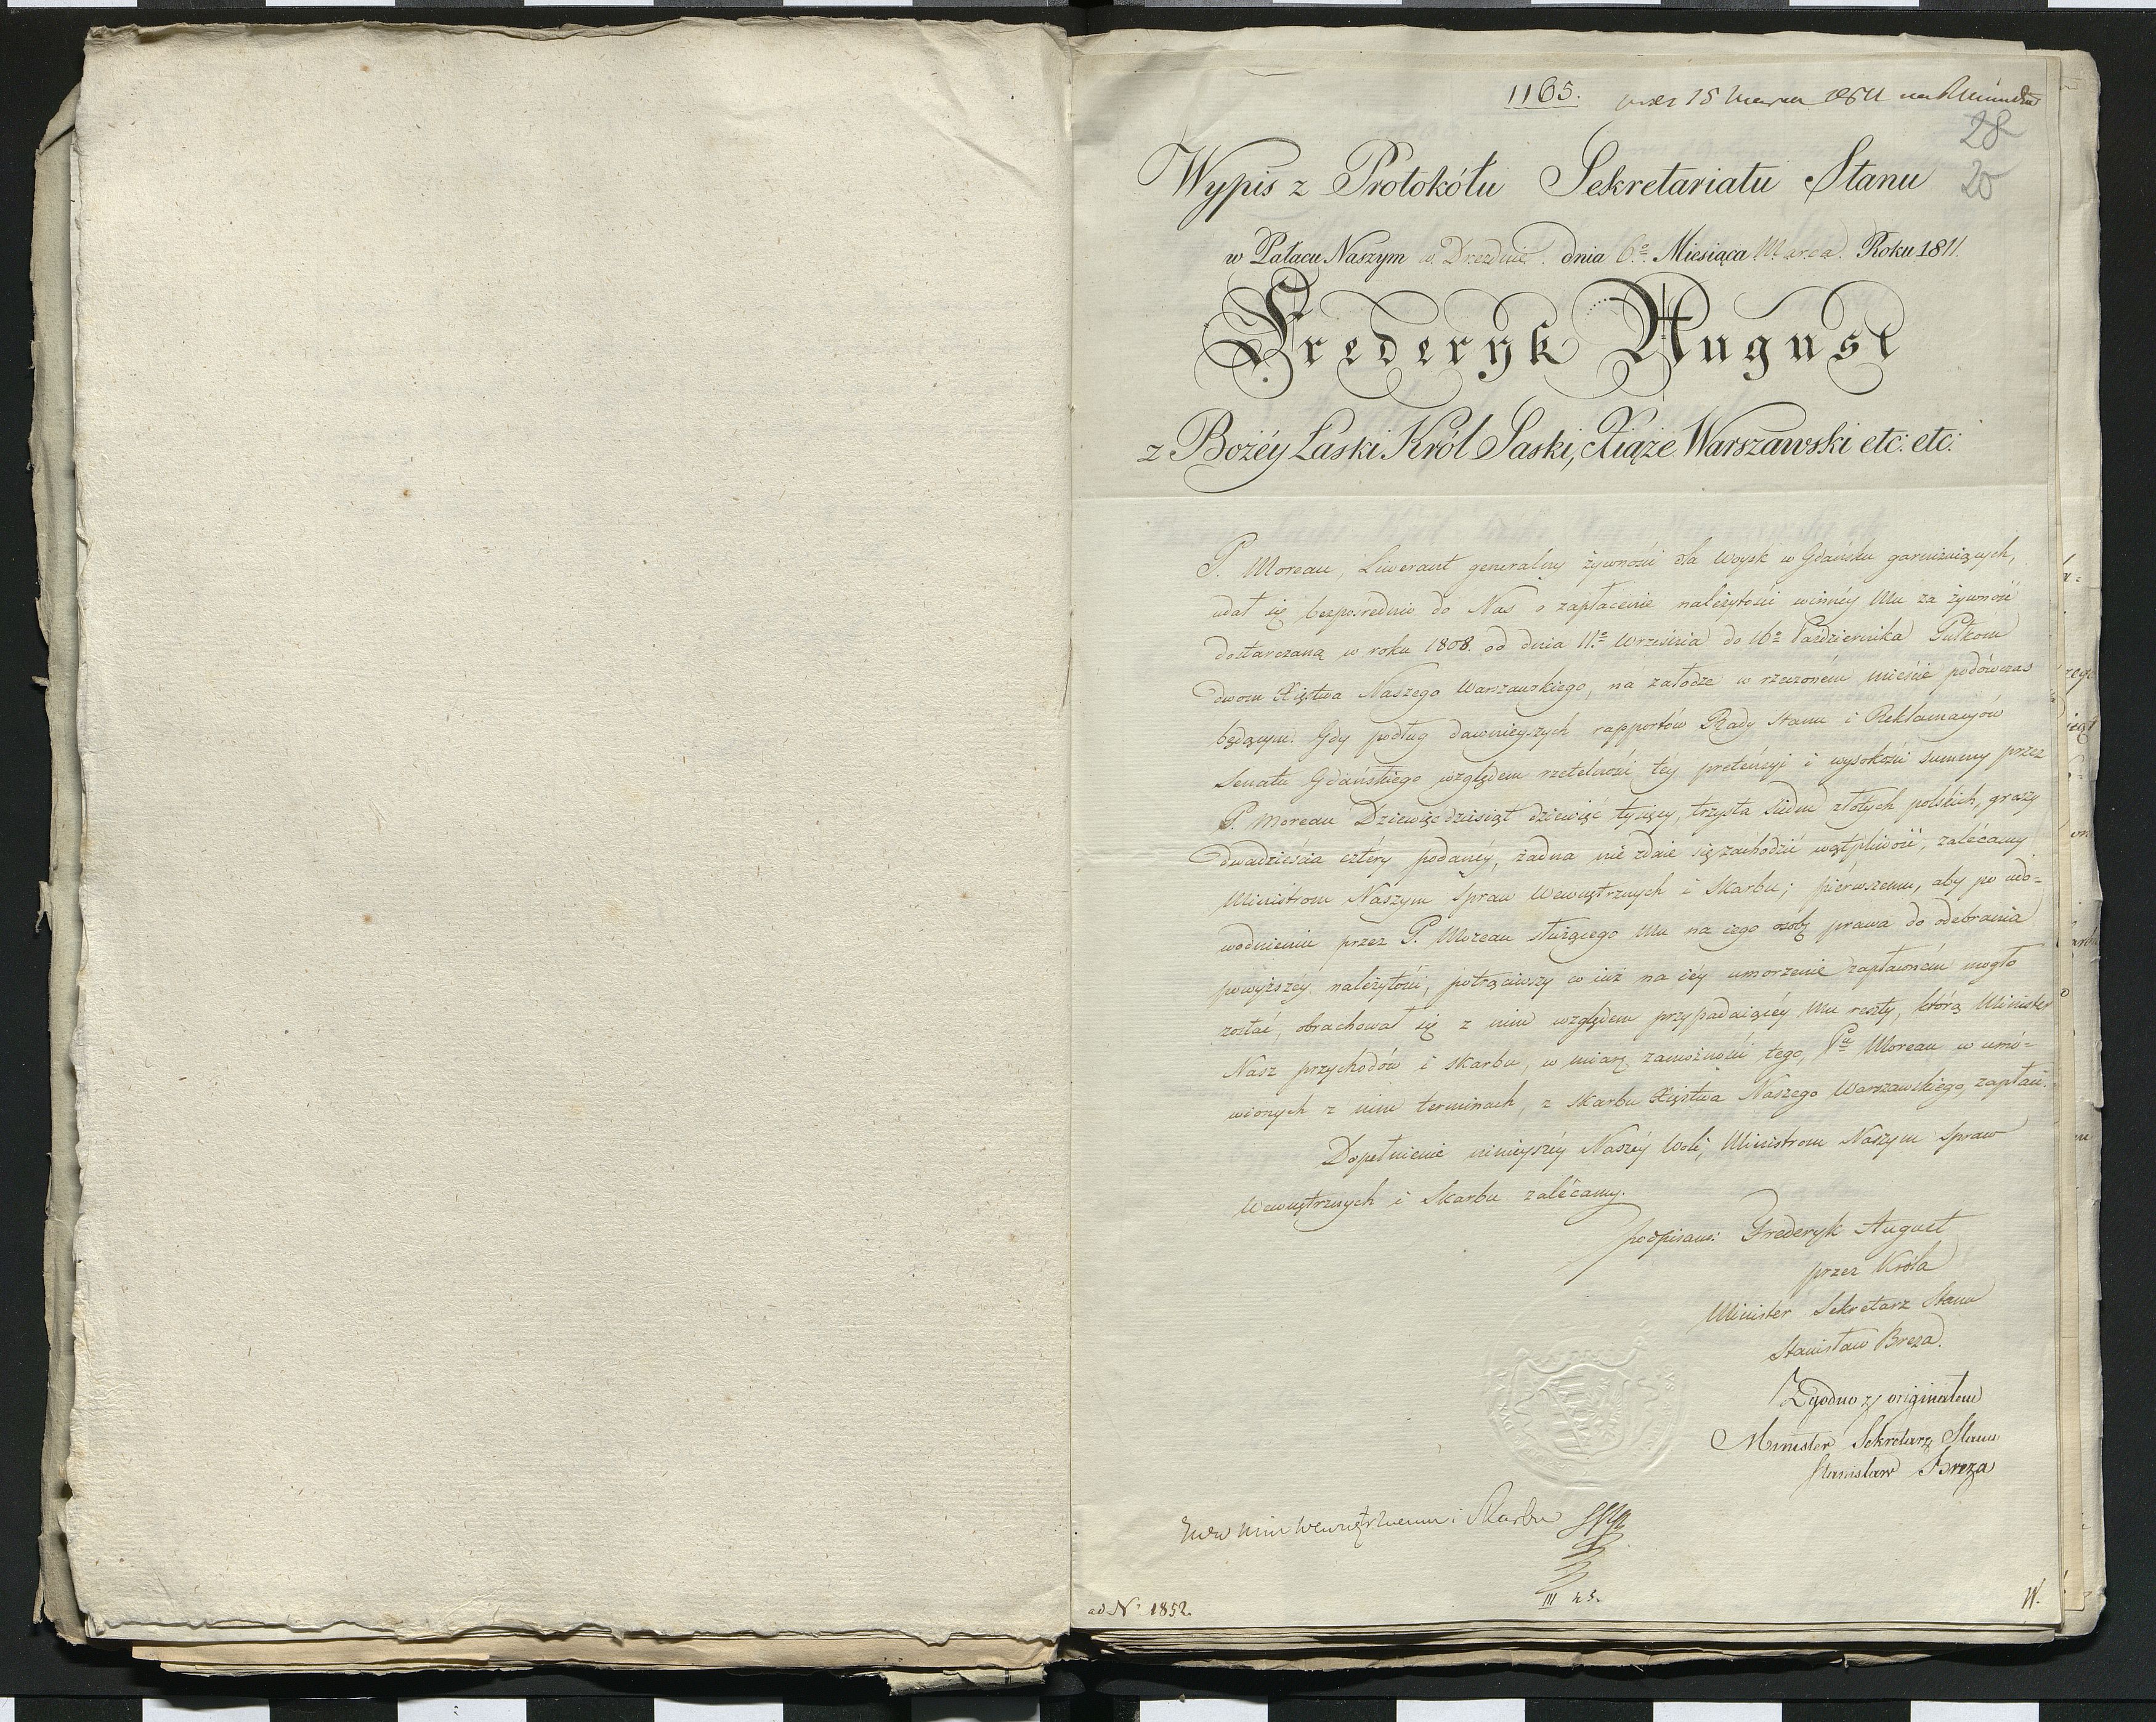 1165.
28
20
Wypis z Protokółu Sekretariatu Stanu
w Pałacu Naszym w Dreźnie. dnia 6.º Miesiąca Marca. Roku 1811.
Frederyk August
z Bożéy Łaski Król Saski, Xiąże Warszawski etc: etc:
P. Moreau, Liwerant generalny żywności dla woysk w Gdańsku garnizuiących,
udał się bezpośrednio do Nas o zapłacenie należytości winnéy Mu za żywność
dostarczaną w roku 1808. od dnia 11.º Września do 16º Października Pułkom
dwom Xięstwa Naszego Warszawskiego, na załodze w rzeczoném mieście podówczas
będącym. Gdy podług dawnieyszych rapportów Rady Stanu i Reklamacyow
Senatu Gdańskiego względem rzetelności téy pretensyi i wysokości summy przez
P. Moreau Dziewięćdziesiąt dziewięć tysięcy, trzysta siedm złotych polskich, groszy
dwadzieścia cztéry podanéy, żadna nie zdaie się zachodzić wątpliwość, zalécamy
Ministrom Naszym Spraw Wewnętrznych i Skarbu; piérwszemu, aby po udo=
wodnieniu przez P. Moreau służącego Mu na iego osobę prawa do odebrania
powyższéy należytości, potrąciwszy co iuż na iéy umorzenie zapłaconém mogło
zostać, obrachował się z nim względem przypadaiącéy Mu reszty, którą Minister
Nasz przychodów i skarbu, w miarę zamożności tego, Pu Moreau w umó=
wionych z nim terminach, z skarbu Xięstwa Naszego Warszawskiego, zapłaci.
Dopełnienie ninieyszéy Naszéy Woli, Ministrom Naszym Spraw
Wewnętrznych i Skarbu zalécamy.
podpisano: Frederyk August
przez Króla
Minister Sekretarz Stanu
Stanisław Breza.
Zgodno z originałem
Minister Sekretarz Stanu
Stanisław Breza
Wewnętrznemu i Skarbu
III
ad Nº 1852.
W.